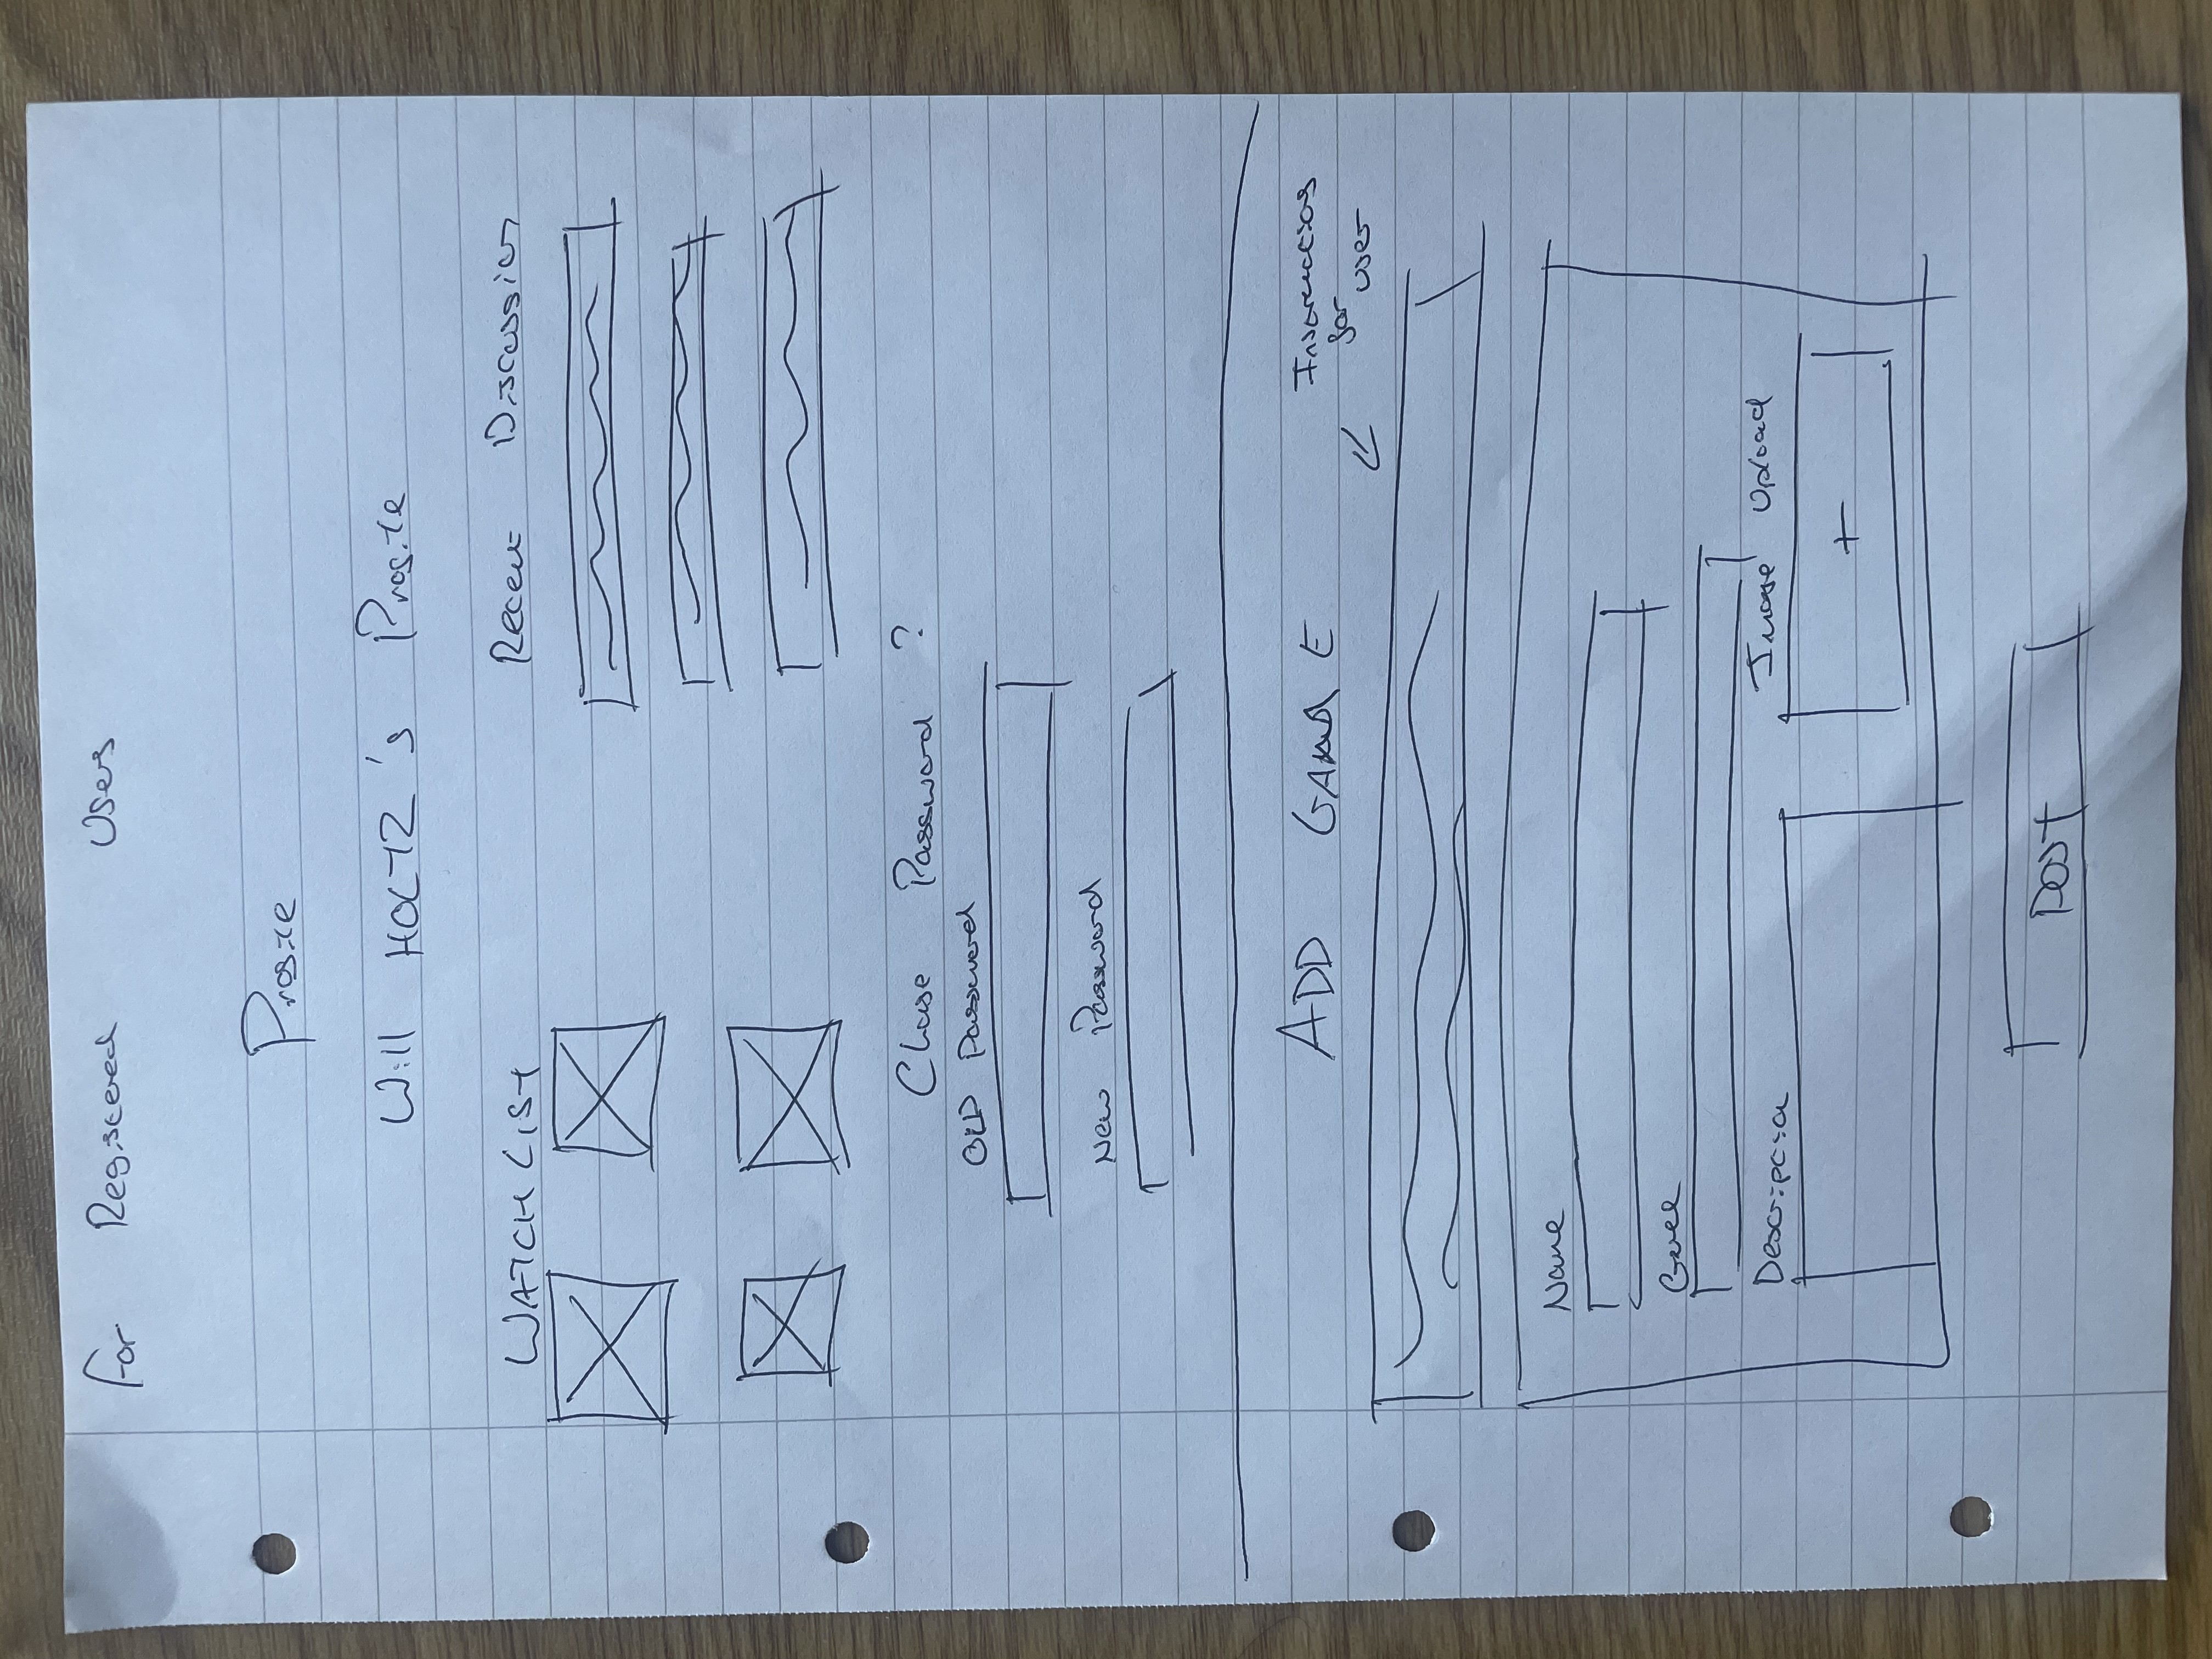 For Registered Users
Profile
Will HOLTZ's Profile
WATCH LIST
Recent Discussion
Change Password ?
OLD Password
New Password
ADD GAME
Instructions
for
user
Name
Description
Image Upload
+
POST